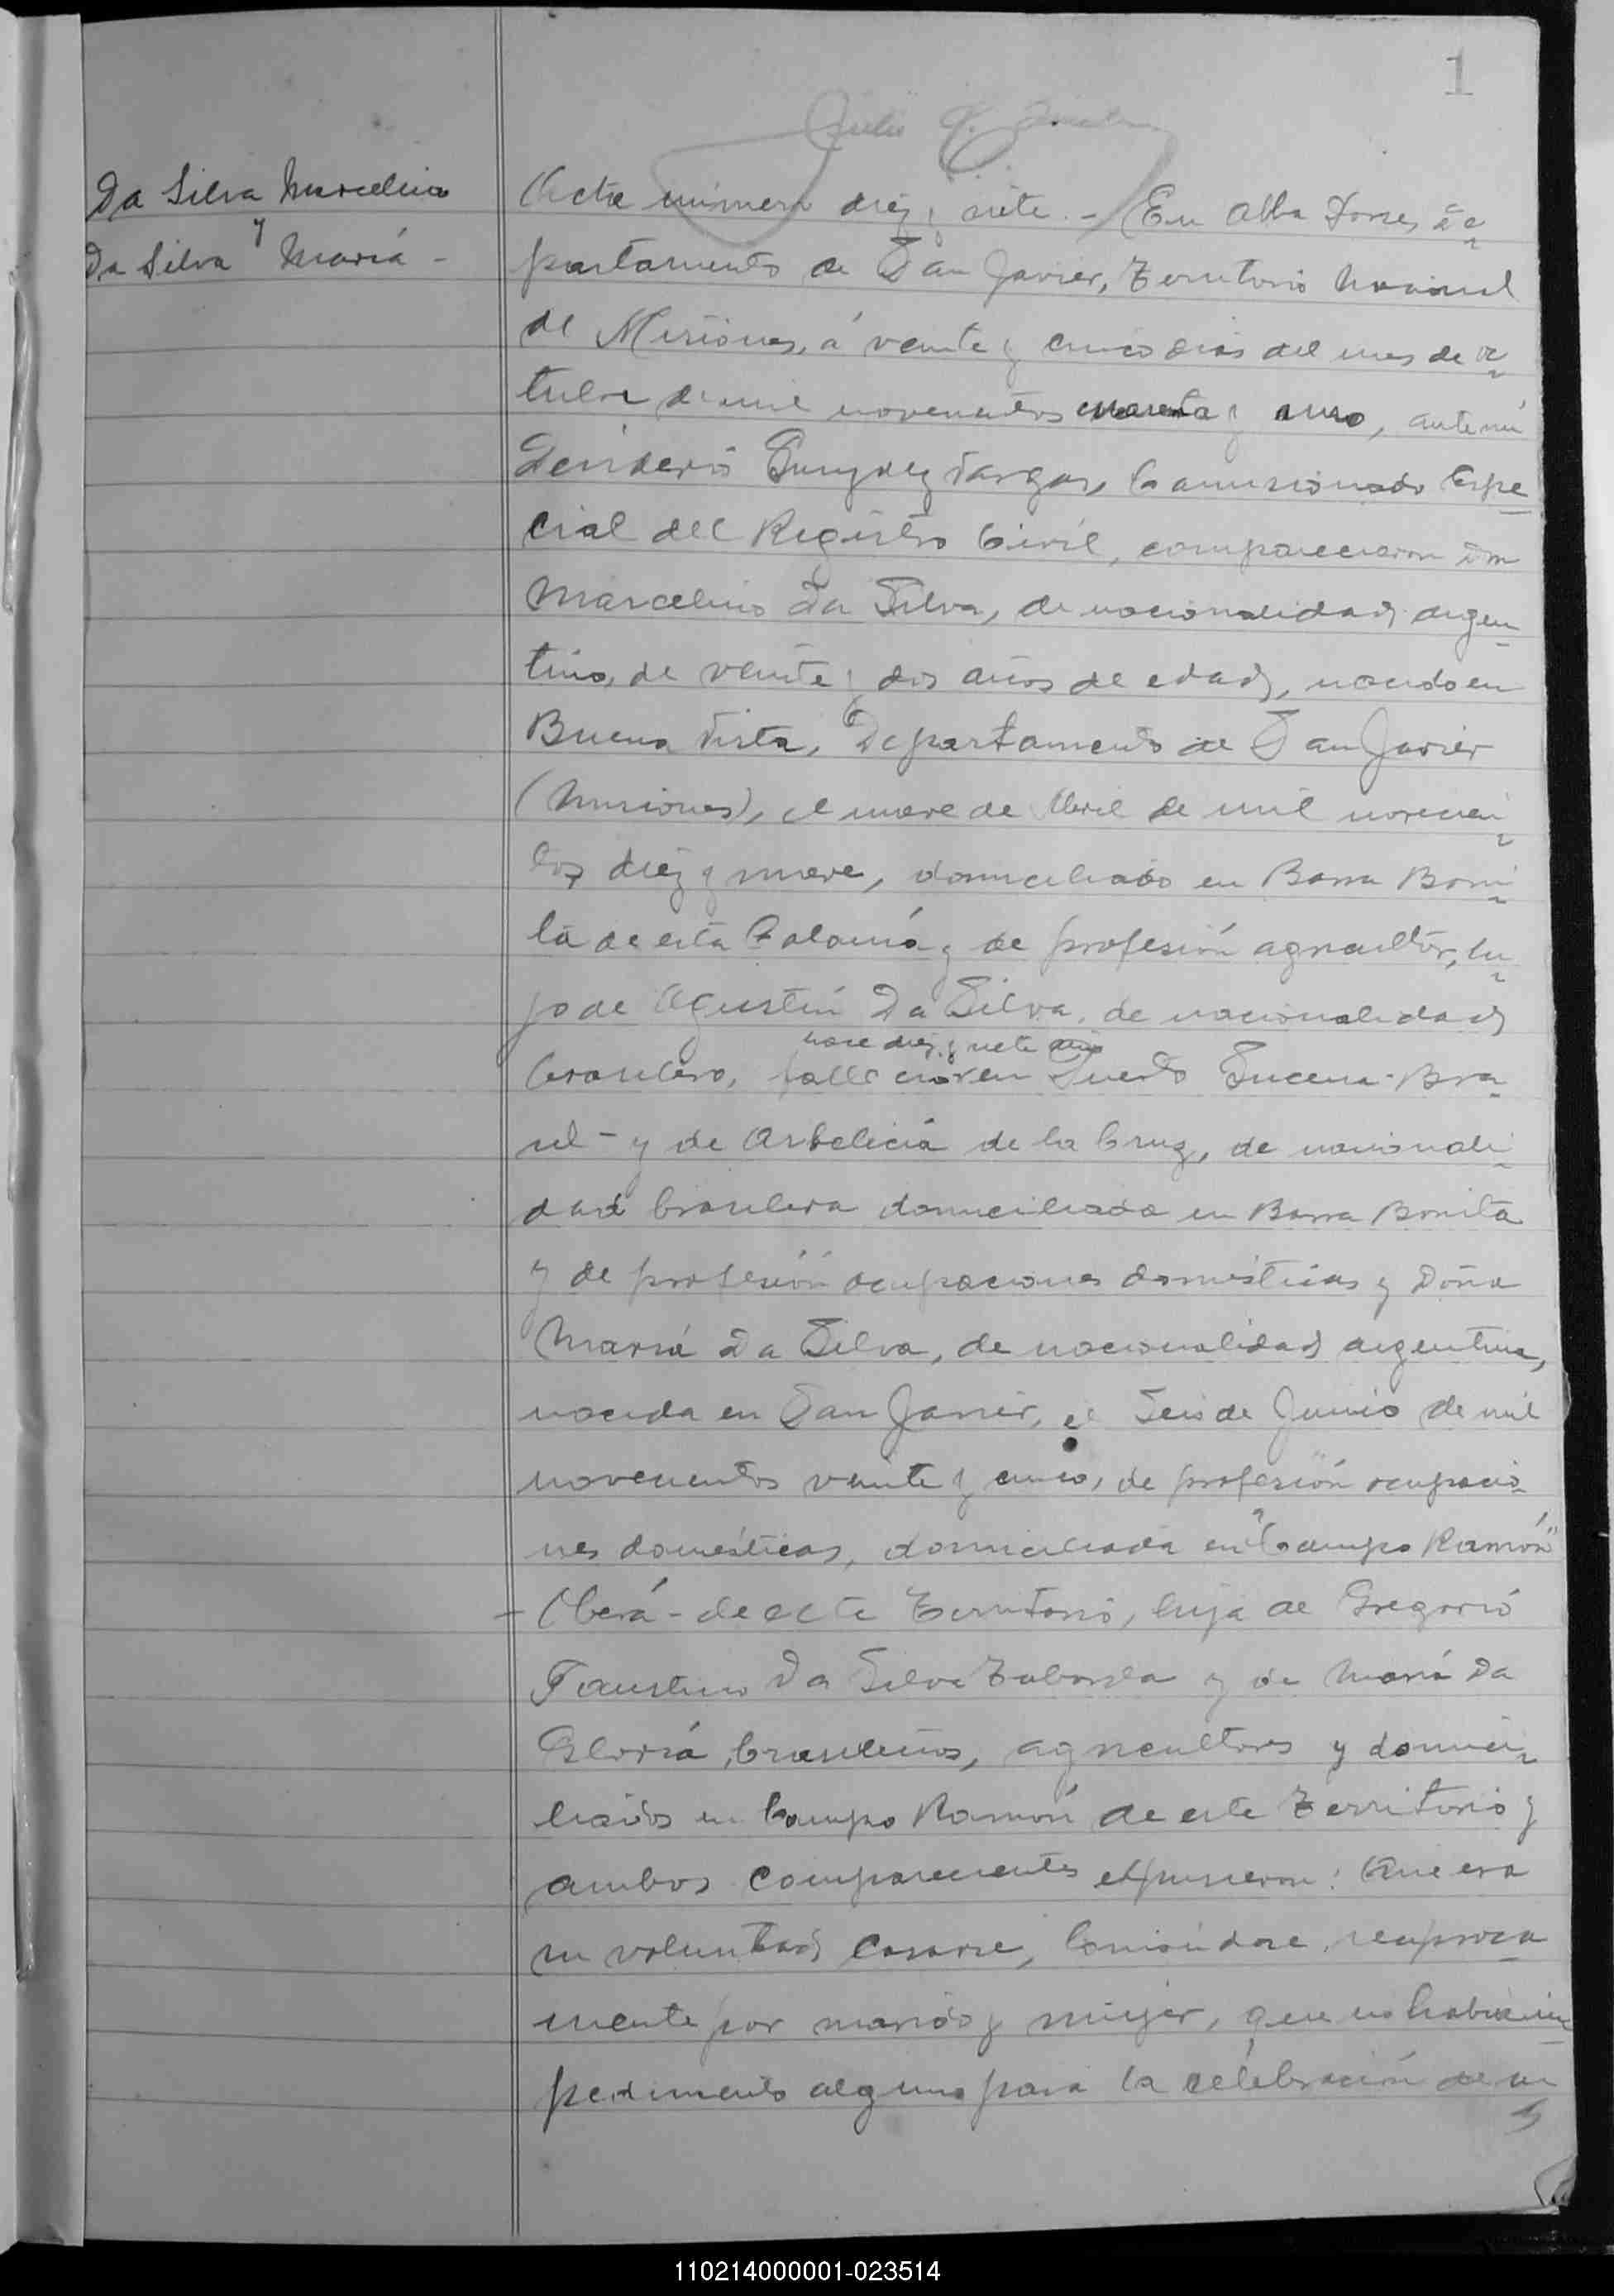 1
Da Silva Marcelino
y
Da Silva María -
Acta número diez y siete. - En Alba Posse, De
partamento de San Javier, Territorio Nacional
de Misiones, á veinte y cinco dias del mes de oc
tubre de mil novecientos cuarenta y uno, ante mí
Desiderio Vargas, Comisionado Espe
cial del Registro Civil, comparecieron Don
Marcelino Da Silva, de nacionalidad argen
tino, de veinte y dos años de edad, nacido en
Buena Vista, Departamento de San Javier
(Misiones), el nueve de Abril de mil novecien
tos diez y nueve, domiciliado en Barra Boni
ta de esta Colonia y de profesión agricultor, hi
jo de Agustín Da Silva, de nacionalidad
hace diez y siete años
brasilero, fallecido en Puerto Lucena - Bra
sil - y de Arbelicia de la Cruz, de nacionali
dad brasilera domiciliada en Barra Bonita
y de profesión ocupaciones domésticas y Doña
María Da Silva, de nacionalidad argentina,
nacida en San Javier, el Seis de Junio de mil
novecientos veinte y cinco, de profesión ocupacio
nes domésticas, domiciliada en "Campo Ramón"
- Oberá - de este Territorio, hija de Gregorio
Faustino Da Silva Taborda y de María Da
Gloria, brasileños, agricultores y domici
liados en Campo Ramón de este Territorio y
ambos comparecientes expusieron: Que era
su voluntad casarse, tomándose recíproca
mente por marido y mujer, que no había im
pedimento alguno para la celebración de su
110214000001-023514